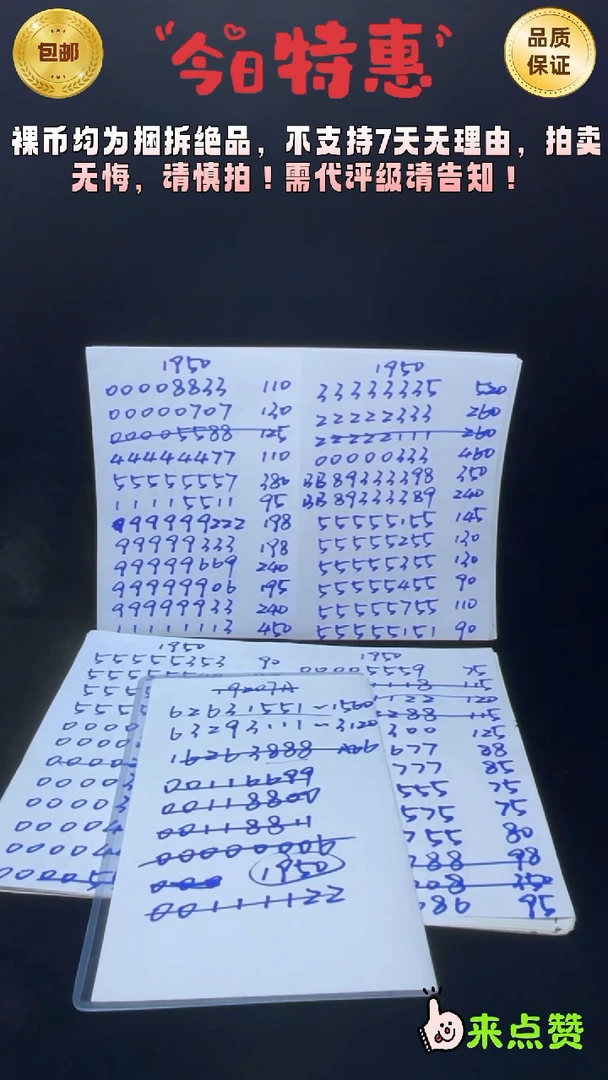 包邮
今日特惠
品质
保证
裸币均为捆拆绝品，不支持7天无理由，拍卖
无悔，请慎拍！需代评级请告知！
1950
00008833 110
00000707 130
00005588 125
44444477 110
55555557 380
11115511 95
99999222 198
99999333 198
99999669 240
99999906 195
99999933 240
11111113 450
1950
33333335 520
22222333 260
22222111 260
00000333 460
89333398 350
89333389 240
55555155 145
55555255 130
55555355 130
55555455 90
55555755 110
55555151 90
1950
55555353 90
1950
00005559 75
118 115
122 120
288 115
300 125
677 88
777 85
555 75
575 75
755 80
288 98
208 350
086 95
19207A
62631551-1560
63293111-3120
16263888
00116699
00118800
00118811
00000006
1950
00111122
来点赞